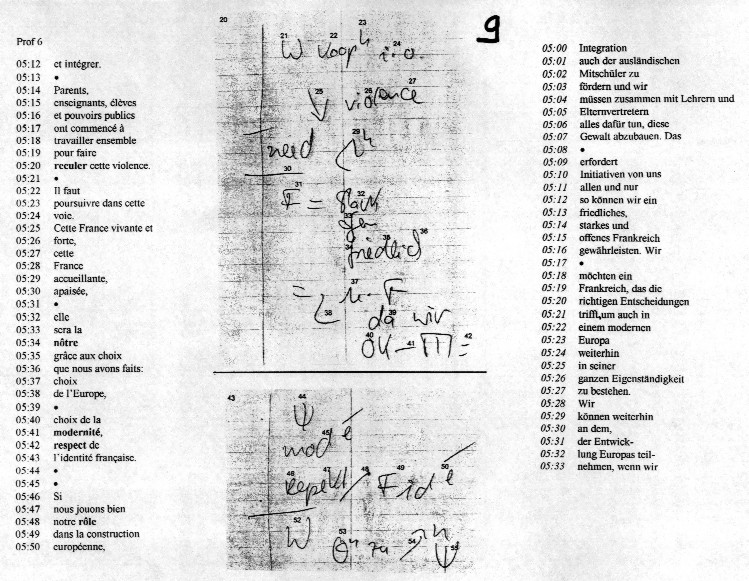 Prof 6
05:12 et intégrer.
05:13 •
05:14 Parents,
05:15 enseignants, élèves
05:16 et pouvoirs publics
05:17 ont commencé à
05:18 travailler ensemble
05:19 pour faire
05:20 reculer cette violence.
05:21 •
05:22 Il faut
05:23 poursuivre dans cette
05:24 voie.
05:25 Cette France vivante et
05:26 forte,
05:27 cette
05:28 France
05:29 accueillante,
05:30 apaisée,
05:31 •
05:32 elle
05:33 sera la
05:34 nôtre
05:35 grâce aux choix
05:36 que nous avons faits:
05:37 choix
05:38 de l'Europe,
05:39 •
05:40 choix de la
05:41 modernité,
05:42 respect de
05:43 l'identité française.
05:44 •
05:45 •
05:46 Si
05:47 nous jouons bien
05:48 notre rôle
05:49 dans la construction
05:50 européenne,
9
20
21 22 23 24
W
25 26 27
violence
need
28
30
31 32
F =
33
34 35 36
friedlich
37
=
38 39
da wir
40 41 42
OK — =
43
44
Ψ
45
mod é
46 47 48 49 50
F id é
51
52
W
53 54 55
zu Ψ
05:00 Integration
05:01 auch der ausländischen
05:02 Mitschüler zu
05:03 fördern und wir
05:04 müssen zusammen mit Lehrern und
05:05 Elternvertretern
05:06 alles dafür tun, diese
05:07 Gewalt abzubauen. Das
05:08 •
05:09 erfordert
05:10 Initiativen von uns
05:11 allen und nur
05:12 so können wir ein
05:13 friedliches,
05:14 starkes und
05:15 offenes Frankreich
05:16 gewährleisten. Wir
05:17 •
05:18 möchten ein
05:19 Frankreich, das die
05:20 richtigen Entscheidungen
05:21 trifft,um auch in
05:22 einem modernen
05:23 Europa
05:24 weiterhin
05:25 in seiner
05:26 ganzen Eigenständigkeit
05:27 zu bestehen.
05:28 Wir
05:29 können weiterhin
05:30 an dem,
05:31 der Entwick-
05:32 lung Europas teil-
05:33 nehmen, wenn wir